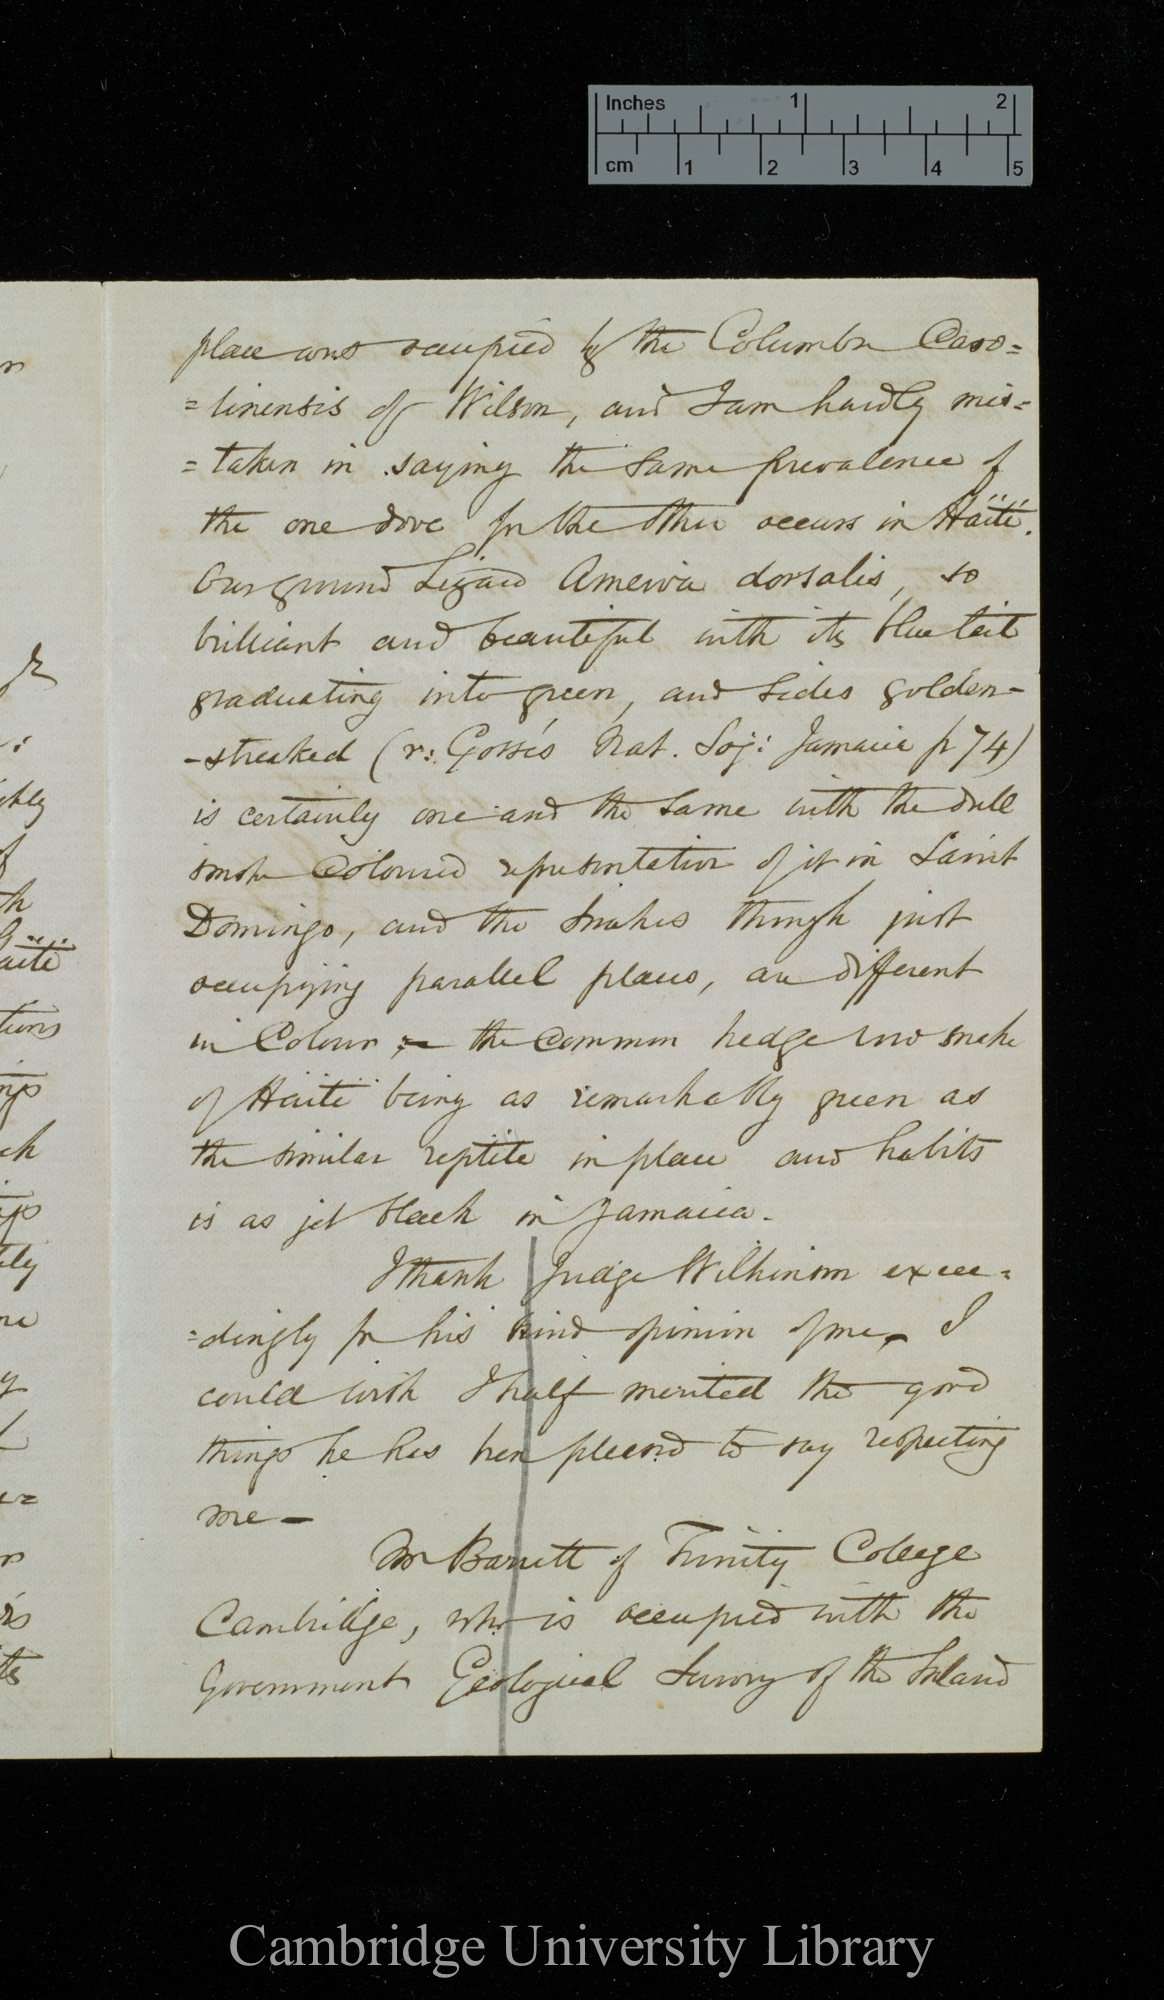 Inches 1 2
cm 1 2 3 4 5
place was occupied by the Columba Caro=
=linensis of Wilson, and I am hardly mis=
=taken in saying the same prevalence of
the one dove for the other occurs in Haïti.
Our ground Lizard Ameiva dorsalis, so
brilliant and beautiful with its blue tail
graduating into green, and sides golden-
-streaked (v: Gosse's Nat. Soj: Jamaica p 74)
is certainly one and the same with the dull
smoke Coloured representation of it in Saint
Domingo, and the snakes though just
occupying parallel places, are different
in Colour,– the common hedge row snake
of Haïti being as remarkably green as
the similar reptile in place and habits
is as jet black in Jamaica.
I thank Judge Wilkinson excee=
=dingly for his kind opinion of me, I
could wish I half merited the good
things he has been pleased to say respecting
me–
Mr Barrett of Trinity College
Cambridge, who is occupied with the
Government Geological Survey of the Island
Cambridge University Library